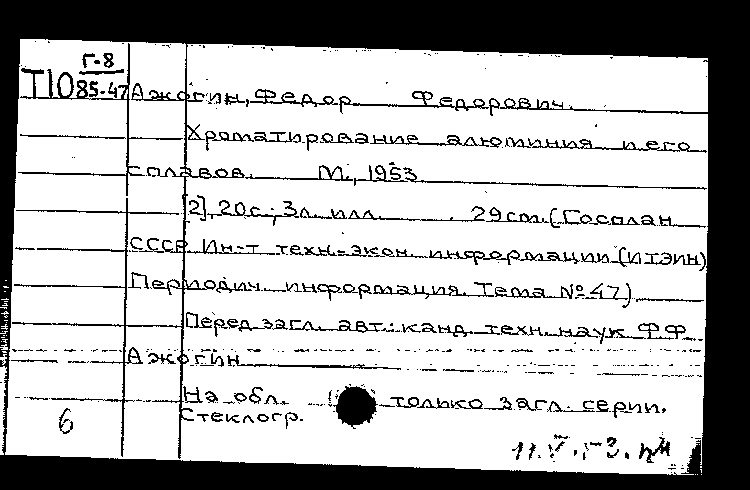 Г-8
Т10 85-47 Ажогин, Федор Федорович.
Хроматирование алюминия и его
сплавов. М., 1953
[2], 20 с.; 3 л. илл. 29 cm. (Госплан
СССР Ин-т техн.-экон. информации (ИТЭИН)
Периодич. информация. Тема № 47)
Перед загл. авт.: канд. техн. наук Ф Ф
Ажогин
На обл. только загл. серии.
Стеклогр.
6